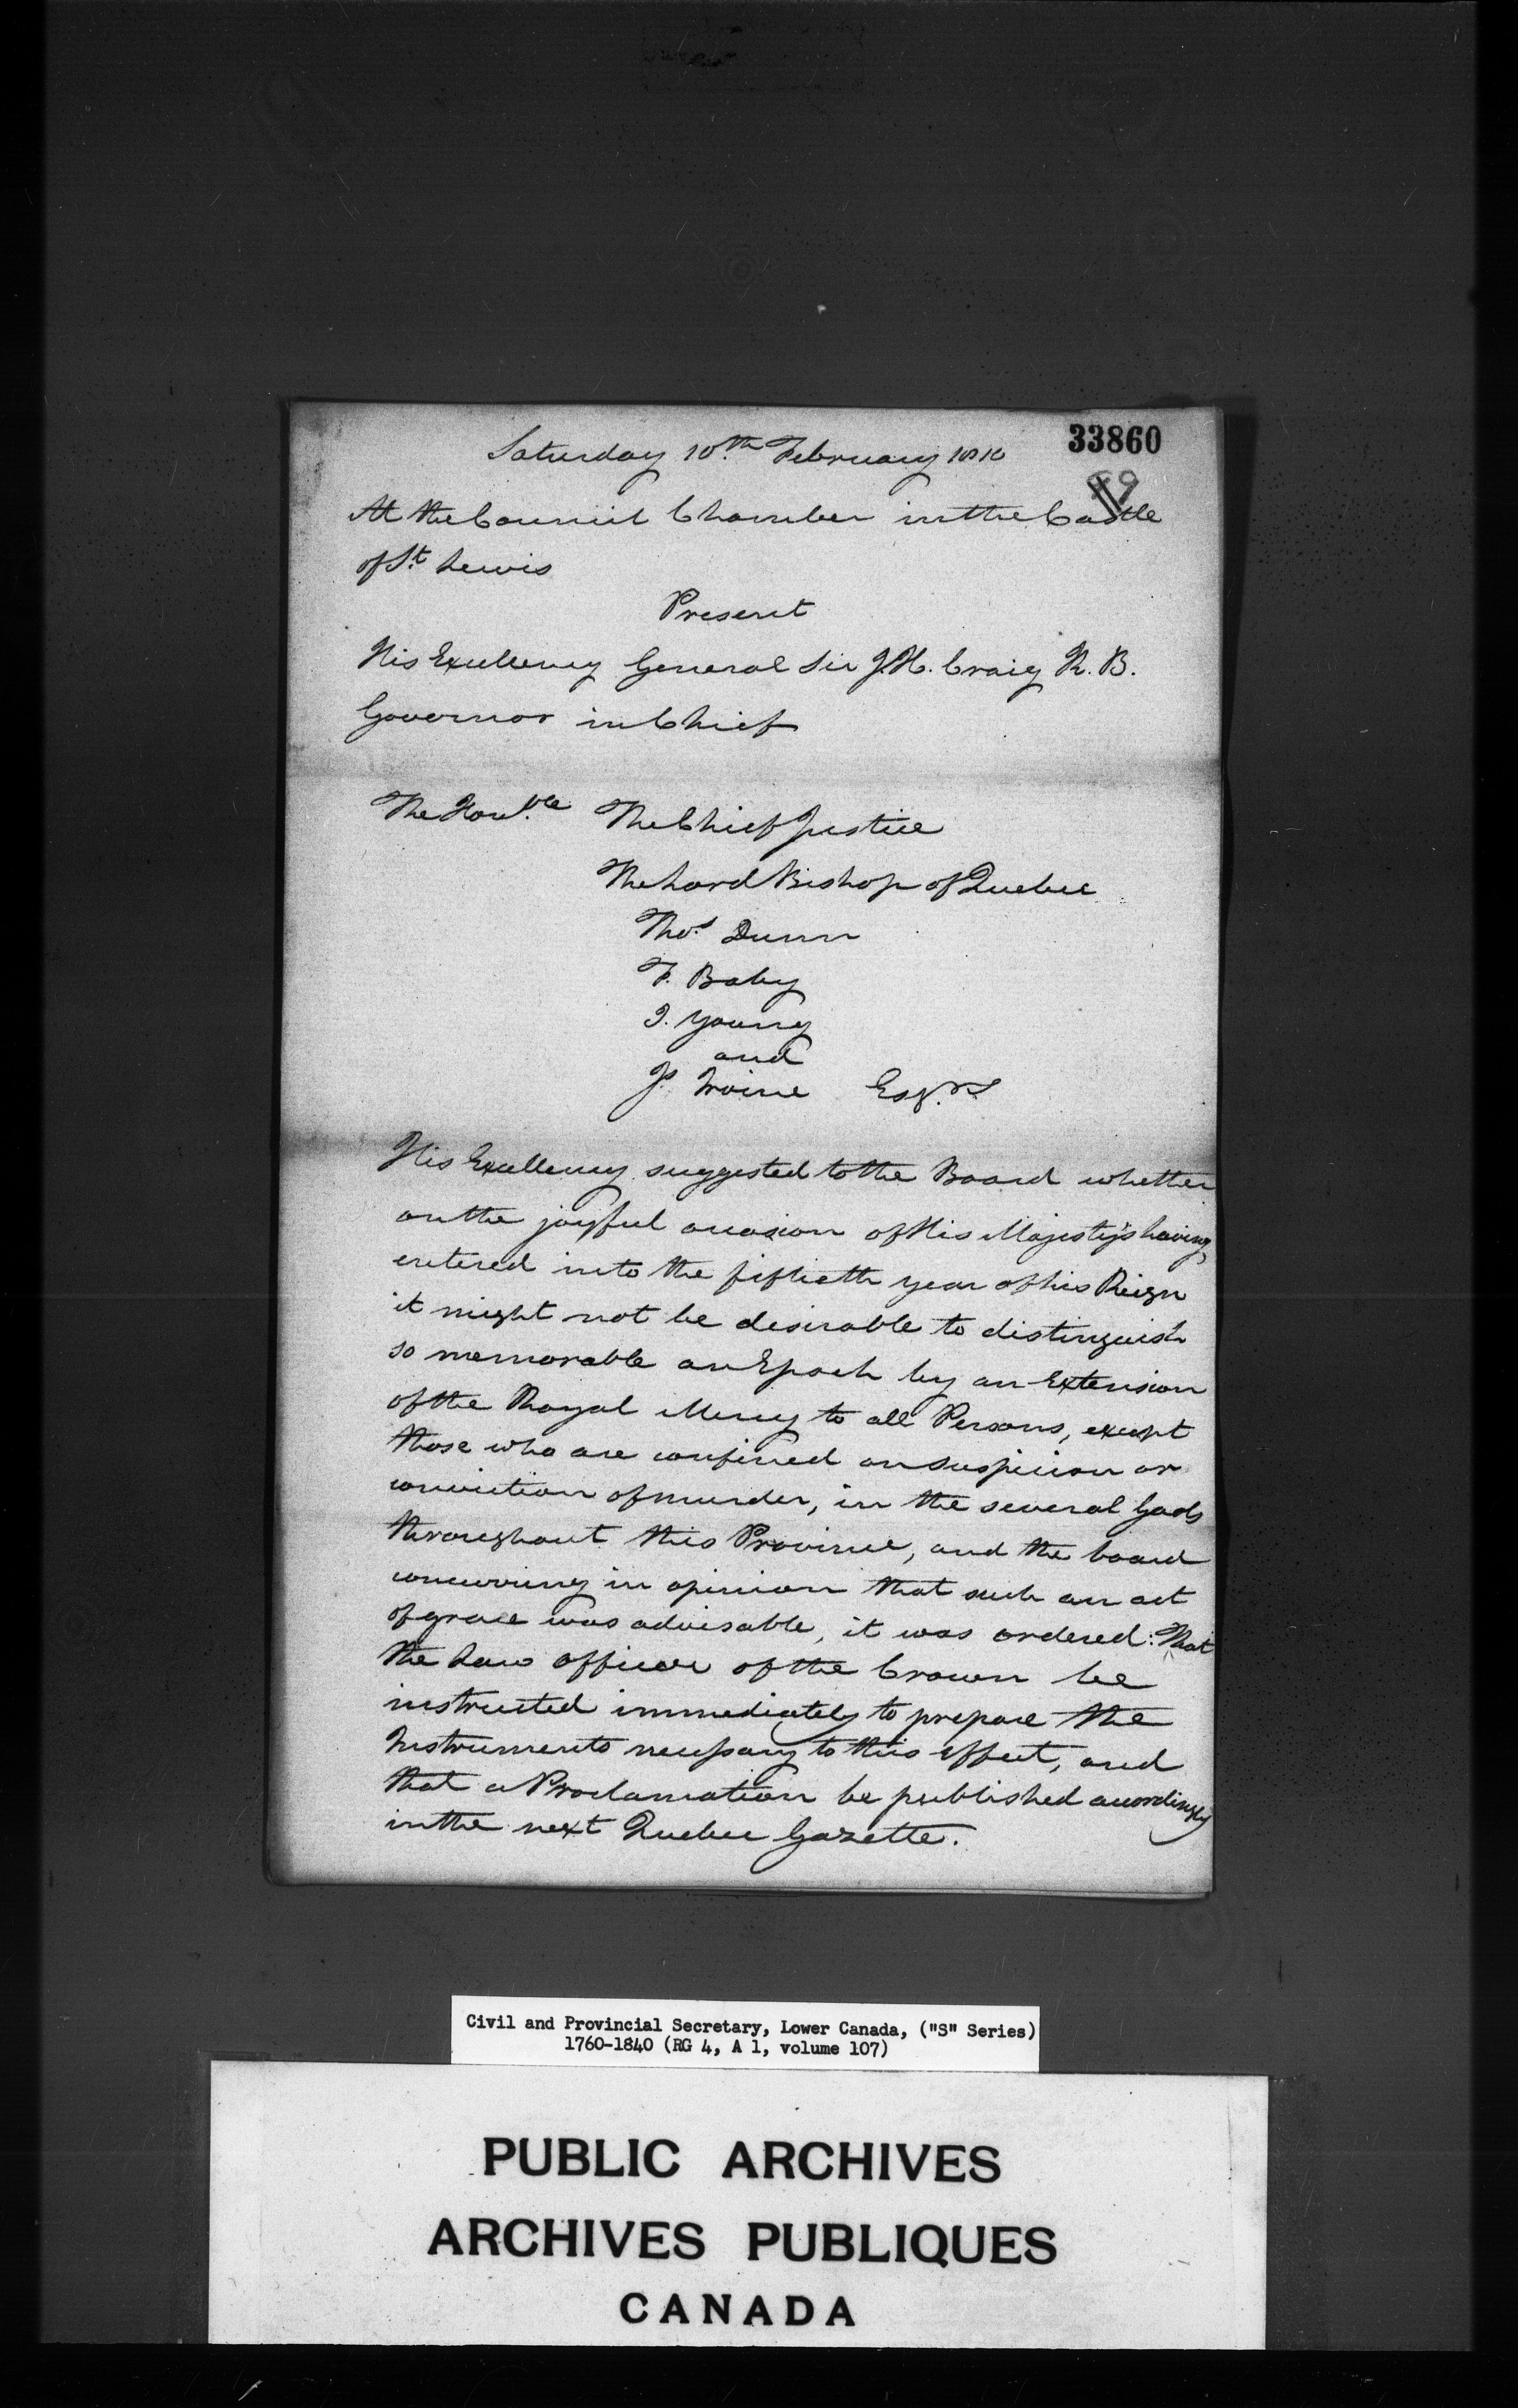 33860
Saturday 10th February 1810
At the Council Chamber in the Castle
of St. Lewis
Present
His Excellency General Sir J.H. Craig K. B.
Governor in Chief
The Honble. The Chief Justice
The Lord Bishop of Quebec
Thos. Dunn
F. Baby
J. Young
and
J. Irvine Esqrs.
His Excellency suggested to the Board whether
on the joyful occasion of His Majesty's having
entered into the fiftieth year of his Reign
it might not be desirable to distinguish
so memorable an Epoch by an Extension
of the Royal Mercy to all Persons, except
those who are confined on suspicion or
conviction of murder, in the several Gaols
throughout this Province, and the board
concurring in opinion that such an act
of grace was advisable, it was ordered: That
the Law officer of the Crown be
instructed immediately to prepare the
Instruments necessary to this effect, and
that a Proclamation be published accordingly
in the next Quebec Gazette.
Civil and Provincial Secretary, Lower Canada, ("S" Series)
1760-1840 (RG 4, A 1, volume 107)
PUBLIC ARCHIVES
ARCHIVES PUBLIQUES
CANADA